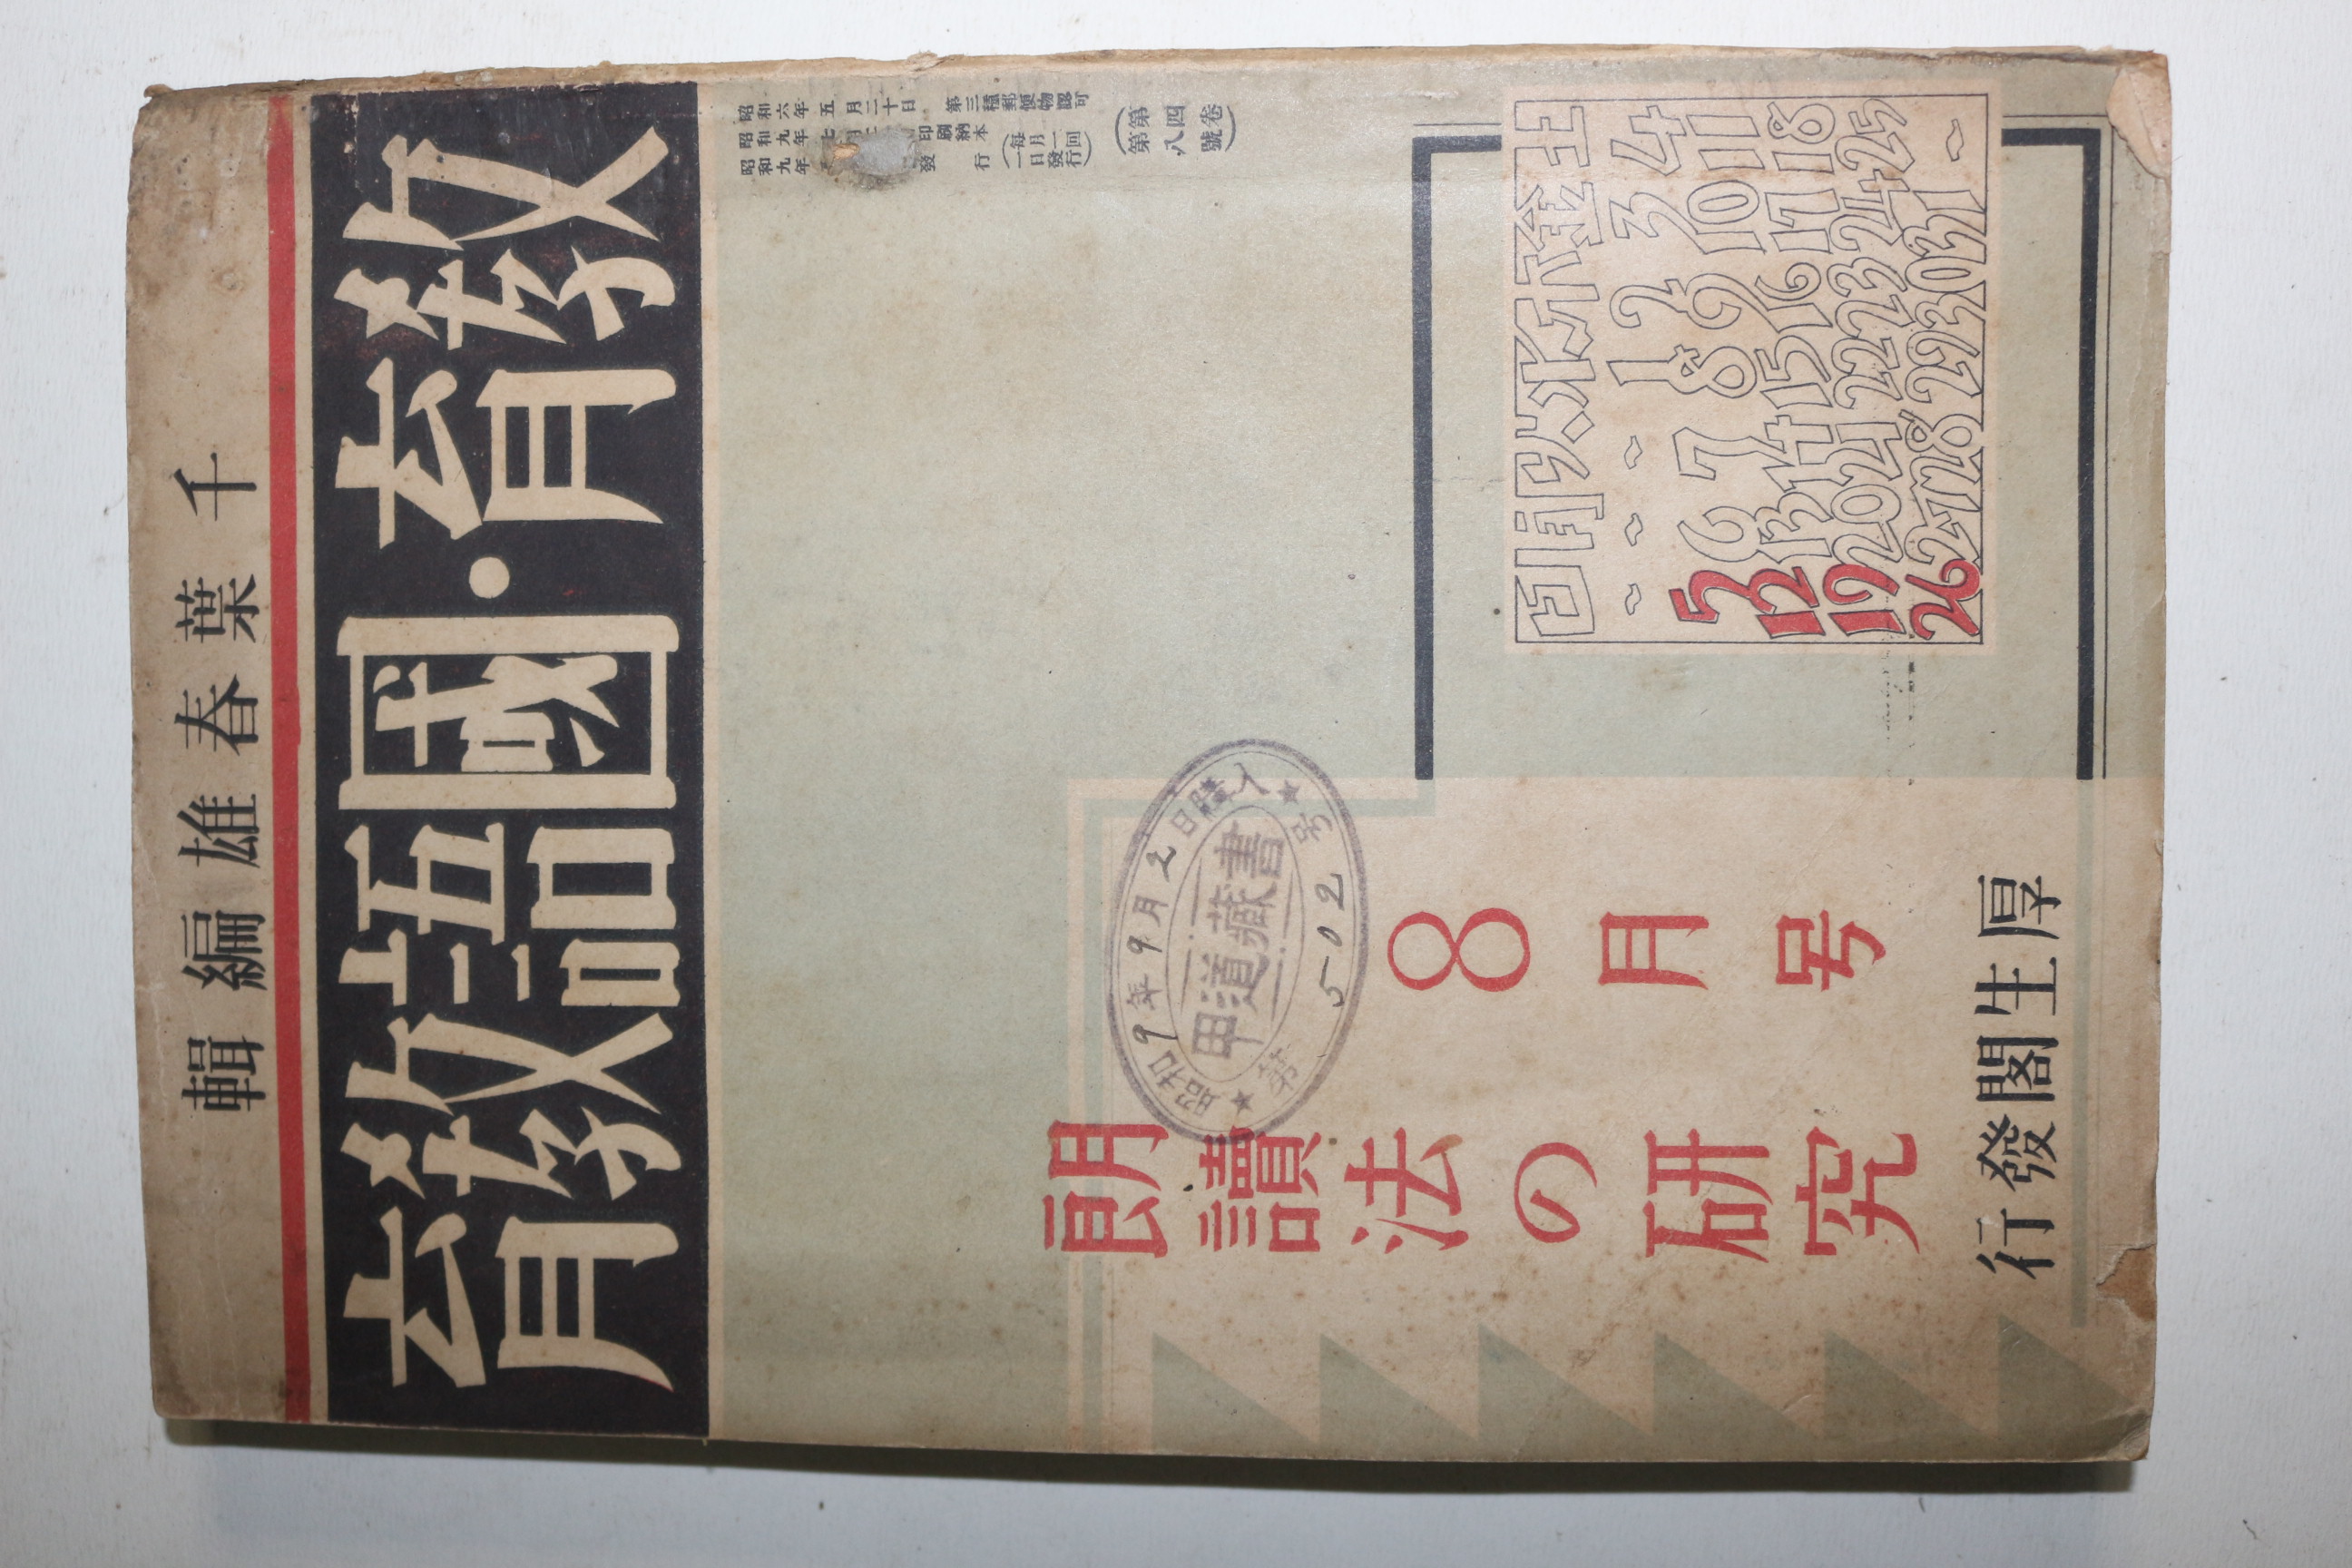 千葉春雄編輯
教育・國語教育
昭和六年五月二十日 第三種郵便物認可
昭和九年七月 印刷納本
昭和九年 發行 (每月一回一日發行)
(第四卷 第八號)
日月火水木金土
1 2 3 4
5 6 7 8 9 10 11
12 13 14 15 16 17 18
19 20 21 22 23 24 25
26 27 28 29 30 31
8月号
朗讀法の研究
昭和9年9月2日購入
甲道藏書
第502号
厚生閣發行